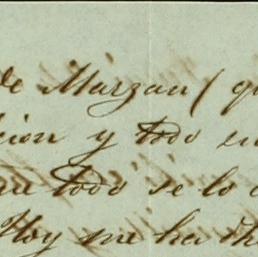 de Marzan (
cion y todo en
todo se lo
Hoy me ha